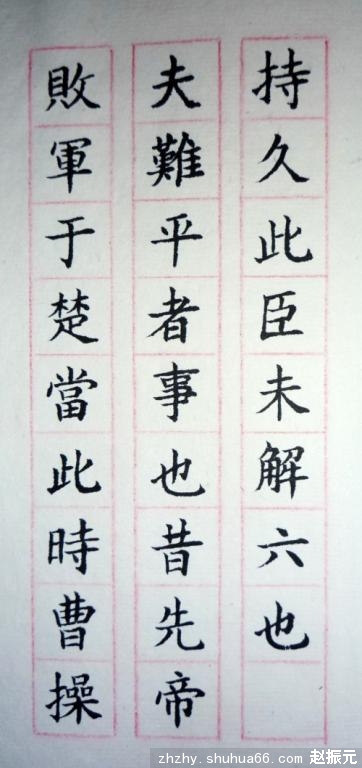 持久此臣未解六也
夫難平者事也昔先帝
敗軍于楚當此時曹操
zhzhy.shuhua66.com 赵振元